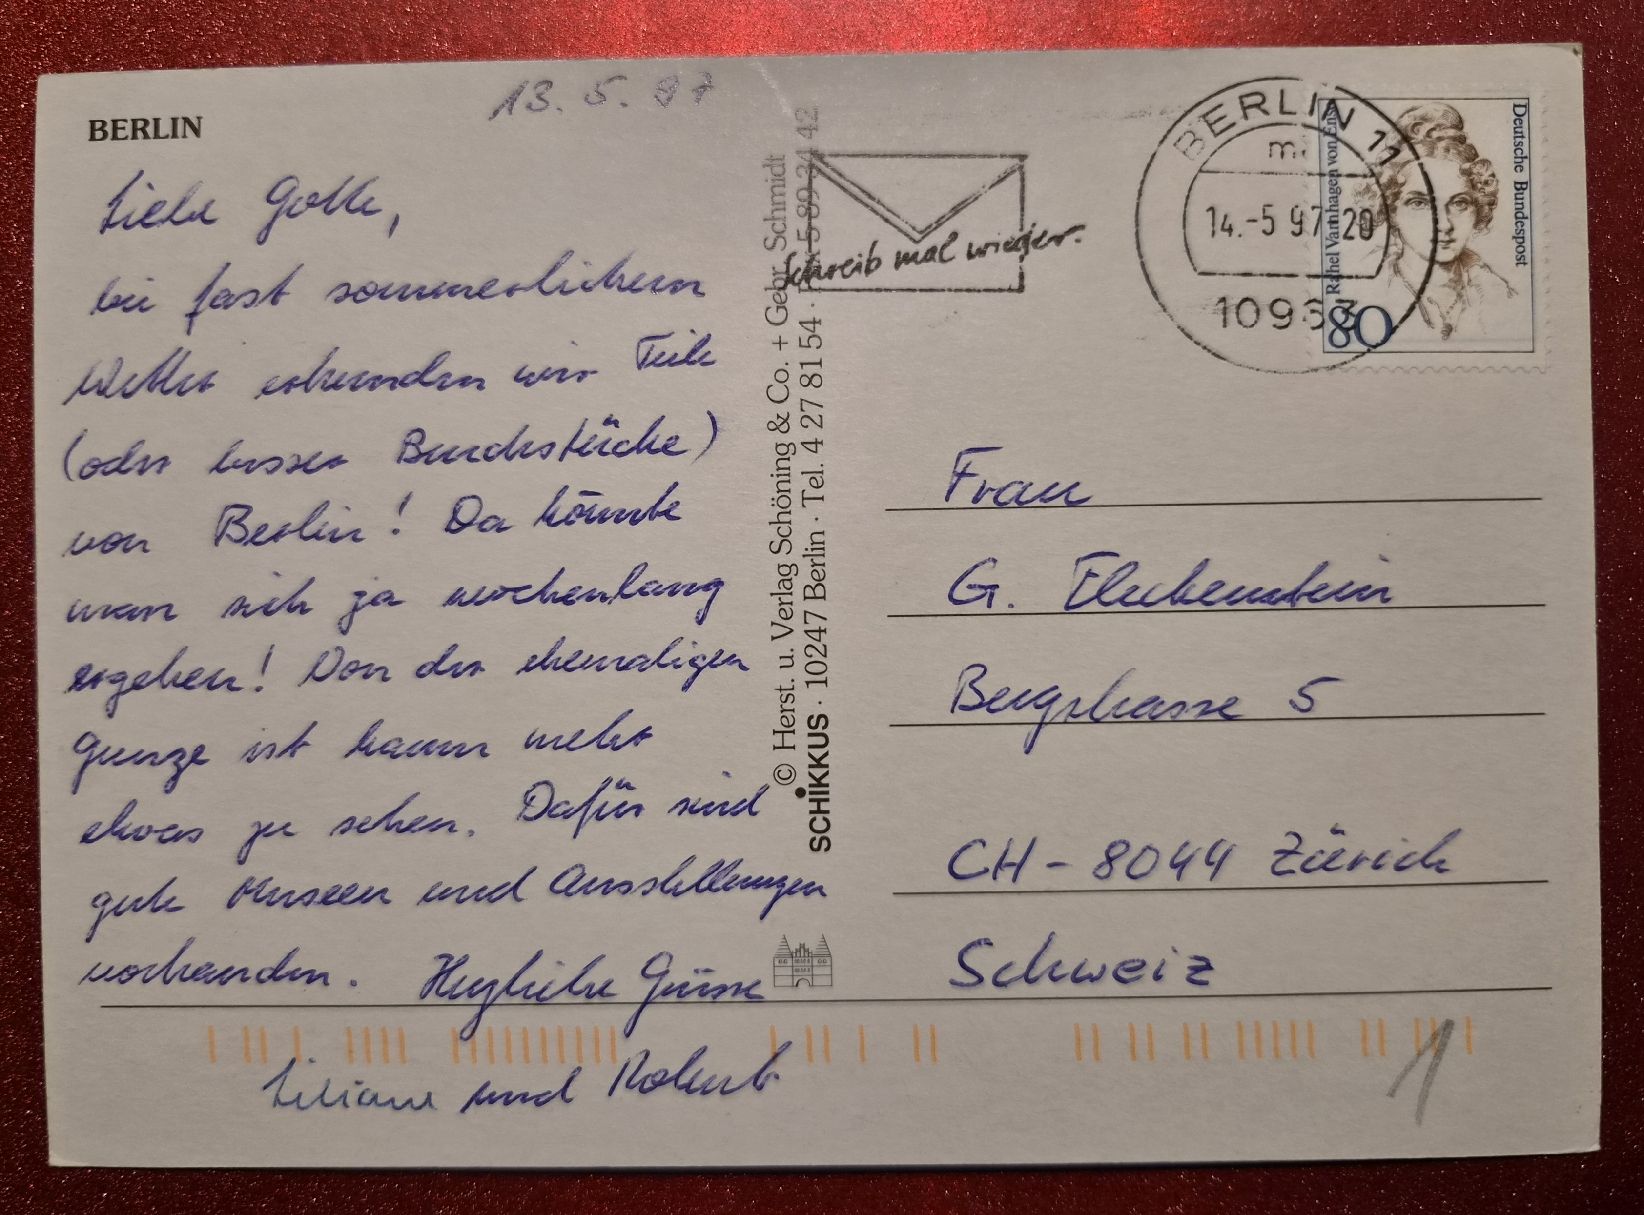 BERLIN
13. 5. 97
Liebe Gotte,
bei fast sommerlichem
Wetter erkunden wir Teile
(oder besser Bruchstücke)
von Berlin! Da könnte
man sich ja wochenlang
ergehen! Von der ehemaligen
Grenze ist kaum mehr
etwas zu sehen. Dafür sind
gute Museen und Ausstellungen
vorhanden. Herzliche Grüsse
Liliane und Robert
© Herst. u. Verlag Schöning & Co. + Gebr. Schmidt
SCHIKKUS · 10247 Berlin · Tel. 4 27 81 54 · Fax 5 89 34 42
Schreib mal wieder.
BERLIN 11
14.-5 97-20
10963
Deutsche Bundespost
Rahel Varnhagen von Ense
80
Frau
G. Fleckenstein
Bergstrasse 5
CH - 8044 Zürich
Schweiz
1